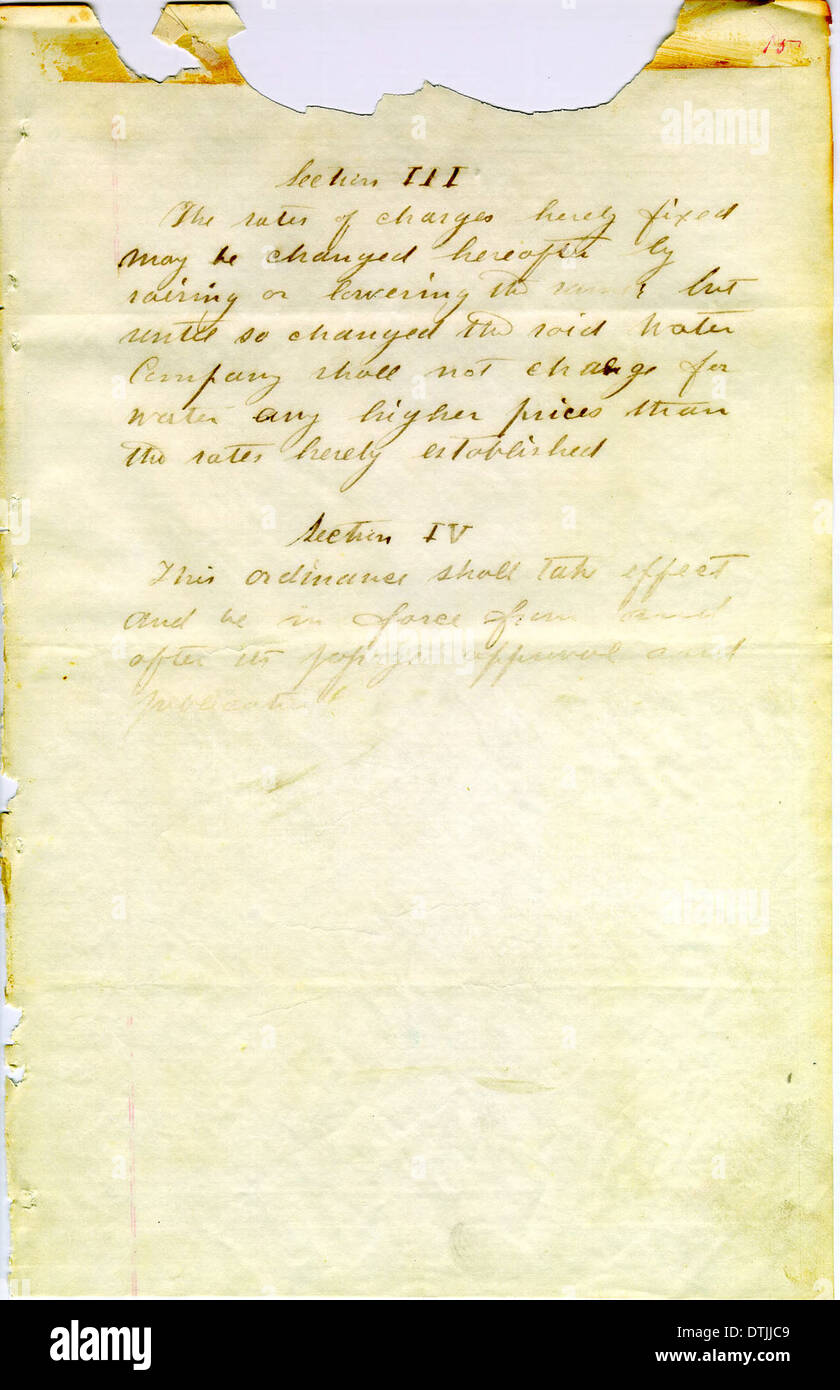 15
Section III
The rates of charges hereby fixed
may be changed hereafter by
raising or lowering the same, but
until so changed the said Water
Company shall not charge for
water any higher prices than
the rates hereby established
Section IV
This ordinance shall take effect
and be in force from and
after its approval and
publication
alamy
Image ID: DTJJC9
www.alamy.com